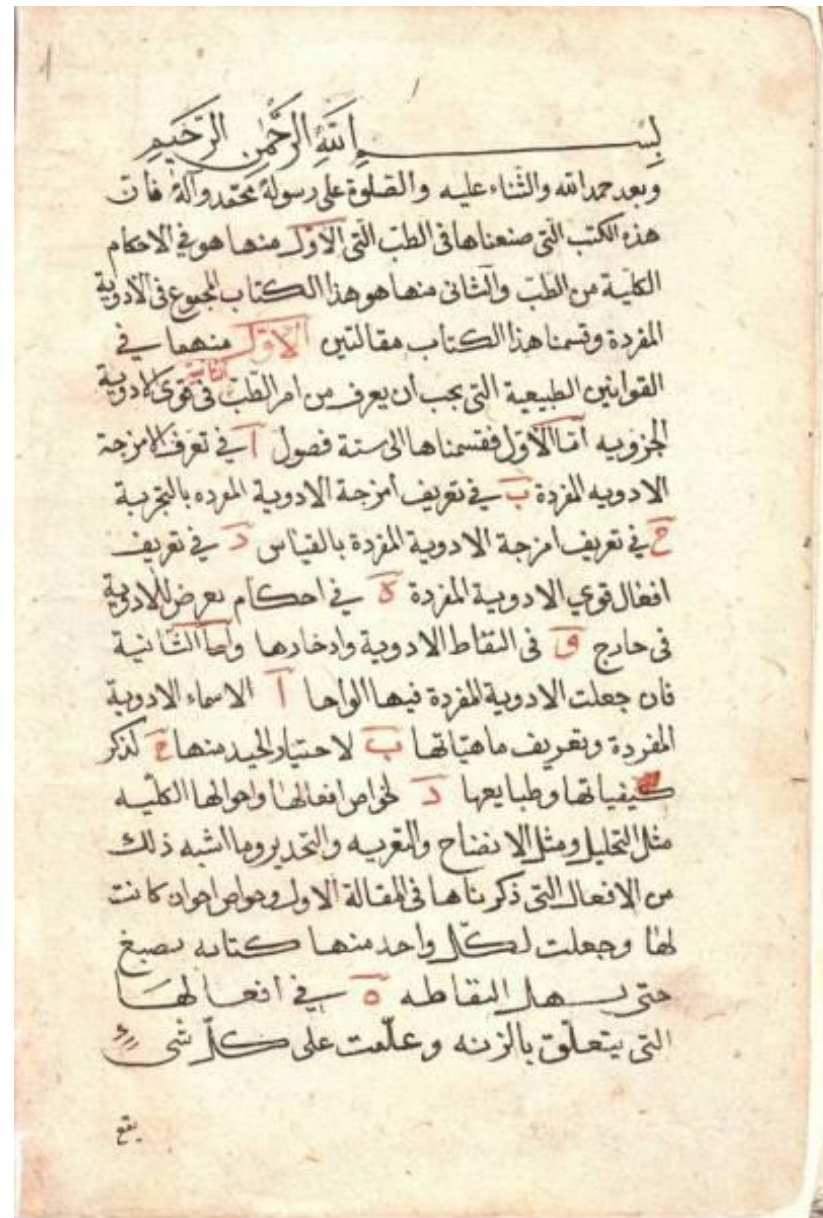 بسم الله الرحمن الرحيم
وبعد حمد الله والثناء عليه والصلوة على رسوله محمد وآله فان
هذه الكتب التى صنعناها فى الطب التى الاول منها هو في الاحكام
الكلية من الطب والثانى منها هو هذا الكتاب المجموع فى الادوية
المفردة وقسمنا هذا الكتاب مقالتين الاول منهما في
القوانين الطبيعية التى يجب أن يعرف من امر الطب الثانية فى قوى الادوية
الجزويه أما الاول فقسمناها الى ستة فصول أ في تعرف الامزجة
الادويه المفردة ب في تعريف أمزجة الادوية المفرده بالتجربة
ج في تعريف امزجة الادوية المفردة بالقياس د في تعريف
افعال قوي الادوية المفردة ه في احكام تعرض للادوية
فى خارج و فى التقاط الادوية وادخارها وأما الثانية
فان جعلت الادوية المفردة فيها الواحا أ الاسماء الادوية
المفردة وتعريف ماهياتها ب لاختيار الجيد منها ج لذكر
كيفياتها وطبايعها د لخواص افعالها واحوالها الكليه
مثل التحليل ومثل الانضاج والتغريه والتخدير وما اشبه ذلك
من الافعال التى ذكرناها فى المقالة الاول وخواص اخوان كانت
لها وجعلت لكل واحد منها كتابه بصبغ
حتى يسهل التقاطه ه في افعالها
التى يتعلق بالزنه وعلمت على كل شى
يقع